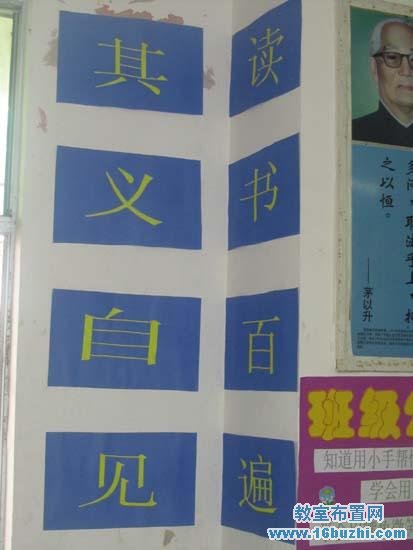 读书百遍
其义自见
之以恒。
——茅以升
班级公
知道用小手帮忙
学会用
教室布置网
www.16buzhi.com